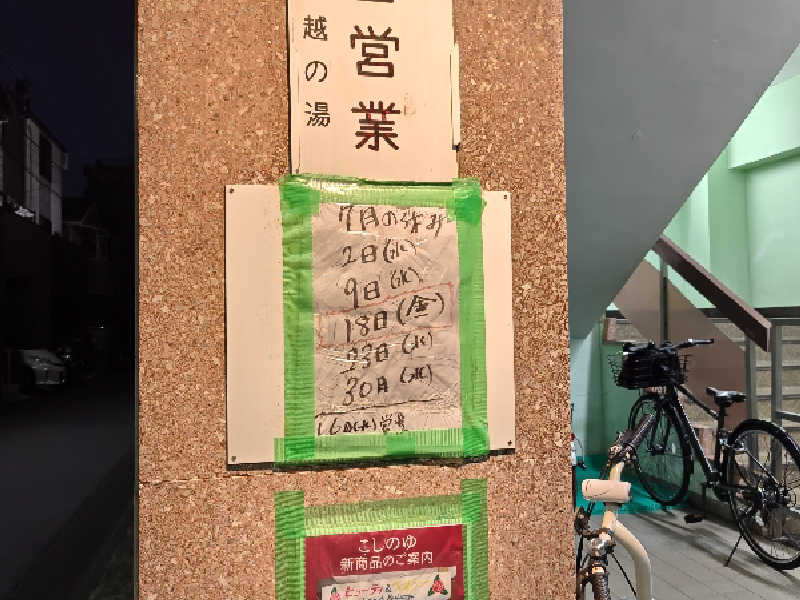 営業
越の湯
7月の休み
2日(水)
9日(水)
18日(金)
23日(水)
30日(水)
16日(水)営業
こしのゆ
新商品のご案内
ビューティ&